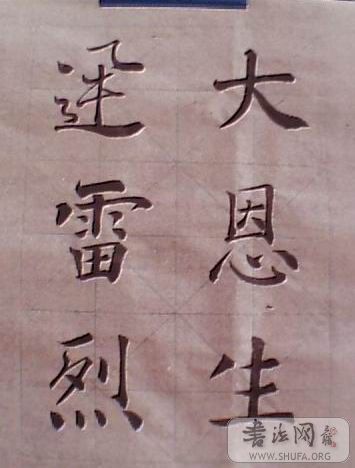 大恩生
迅雷烈
书法网
WWW.SHUFA.ORG